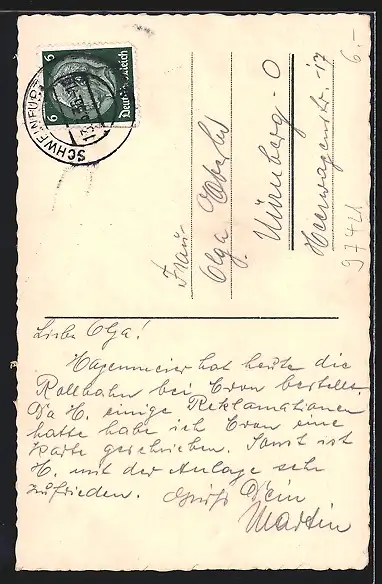 6
6
Deutsches Reich
SCHWEINFURT
6.-
97421
Frau
Olga
Nürnberg-O
17
Liebe Olga!
Hagenmeier hat heute die
Rollbahn bei Cron bestellt.
Da H. einige Reklamationen
hatte habe ich Cron eine
Karte geschrieben. Sonst ist
H. mit der Anlage sehr
zufrieden. Gruß Dein
Martin